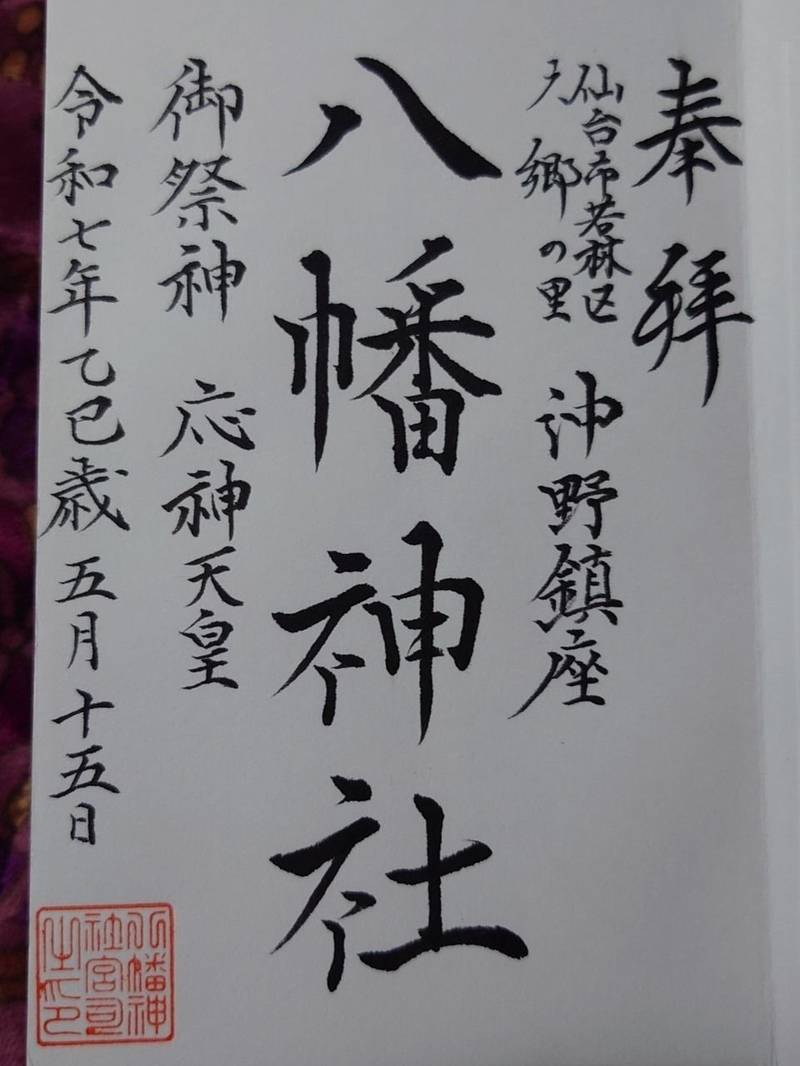 奉拝
仙台市若林区
郷の里
沖野鎮座
八幡神社
御祭神 応神天皇
令和七年乙巳歳五月十五日
八幡神
社宮司
之印